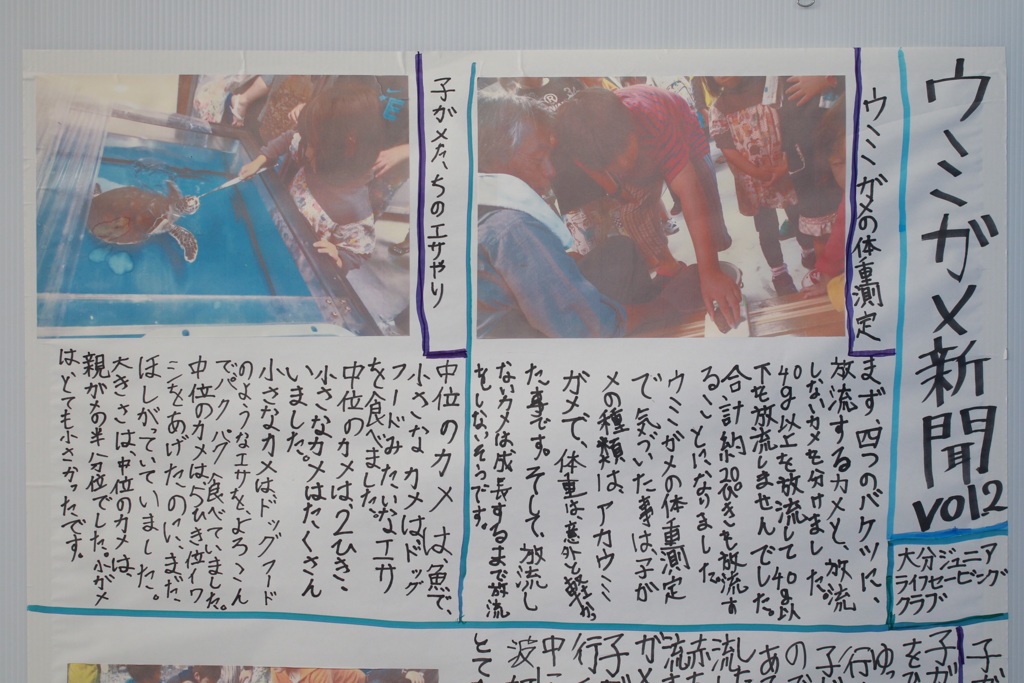 ウミガメ新聞
vol2
大分ジュニア
ライフセービング
クラブ
ウミガメの体重測定
まず、四つのバケツに、
放流するカメと、放流
しないカメを分けました。
40g以上を放流して40g以
下を放流しませんでした。
合計約20ぴきも放流す
ることになりました。
ウミガメの体重測定
で気づいた事は、子が
メの種類は、アカウミ
ガメで、体重は意外と軽かっ
た事です。そして、放流し
ないカメは成長するまで放流
をしないそうです。
子ガメたちのエサやり
中位のカメは魚で、
小さなカメはドッグ
フードみたいなエサ
を食べました。
中位のカメは、2ひき、
小さなカメはたくさん
いました。
小さなカメはドッグフード
のようなエサを、よろこん
でパクパク食べていました。
中位のカメは、5ひき位イワ
シをあげたのに、まだ、
ほしがっていました。
大きさは、中位のカメは、
親ガメの半分位でした。小ガメ
は、とても小さかったです。